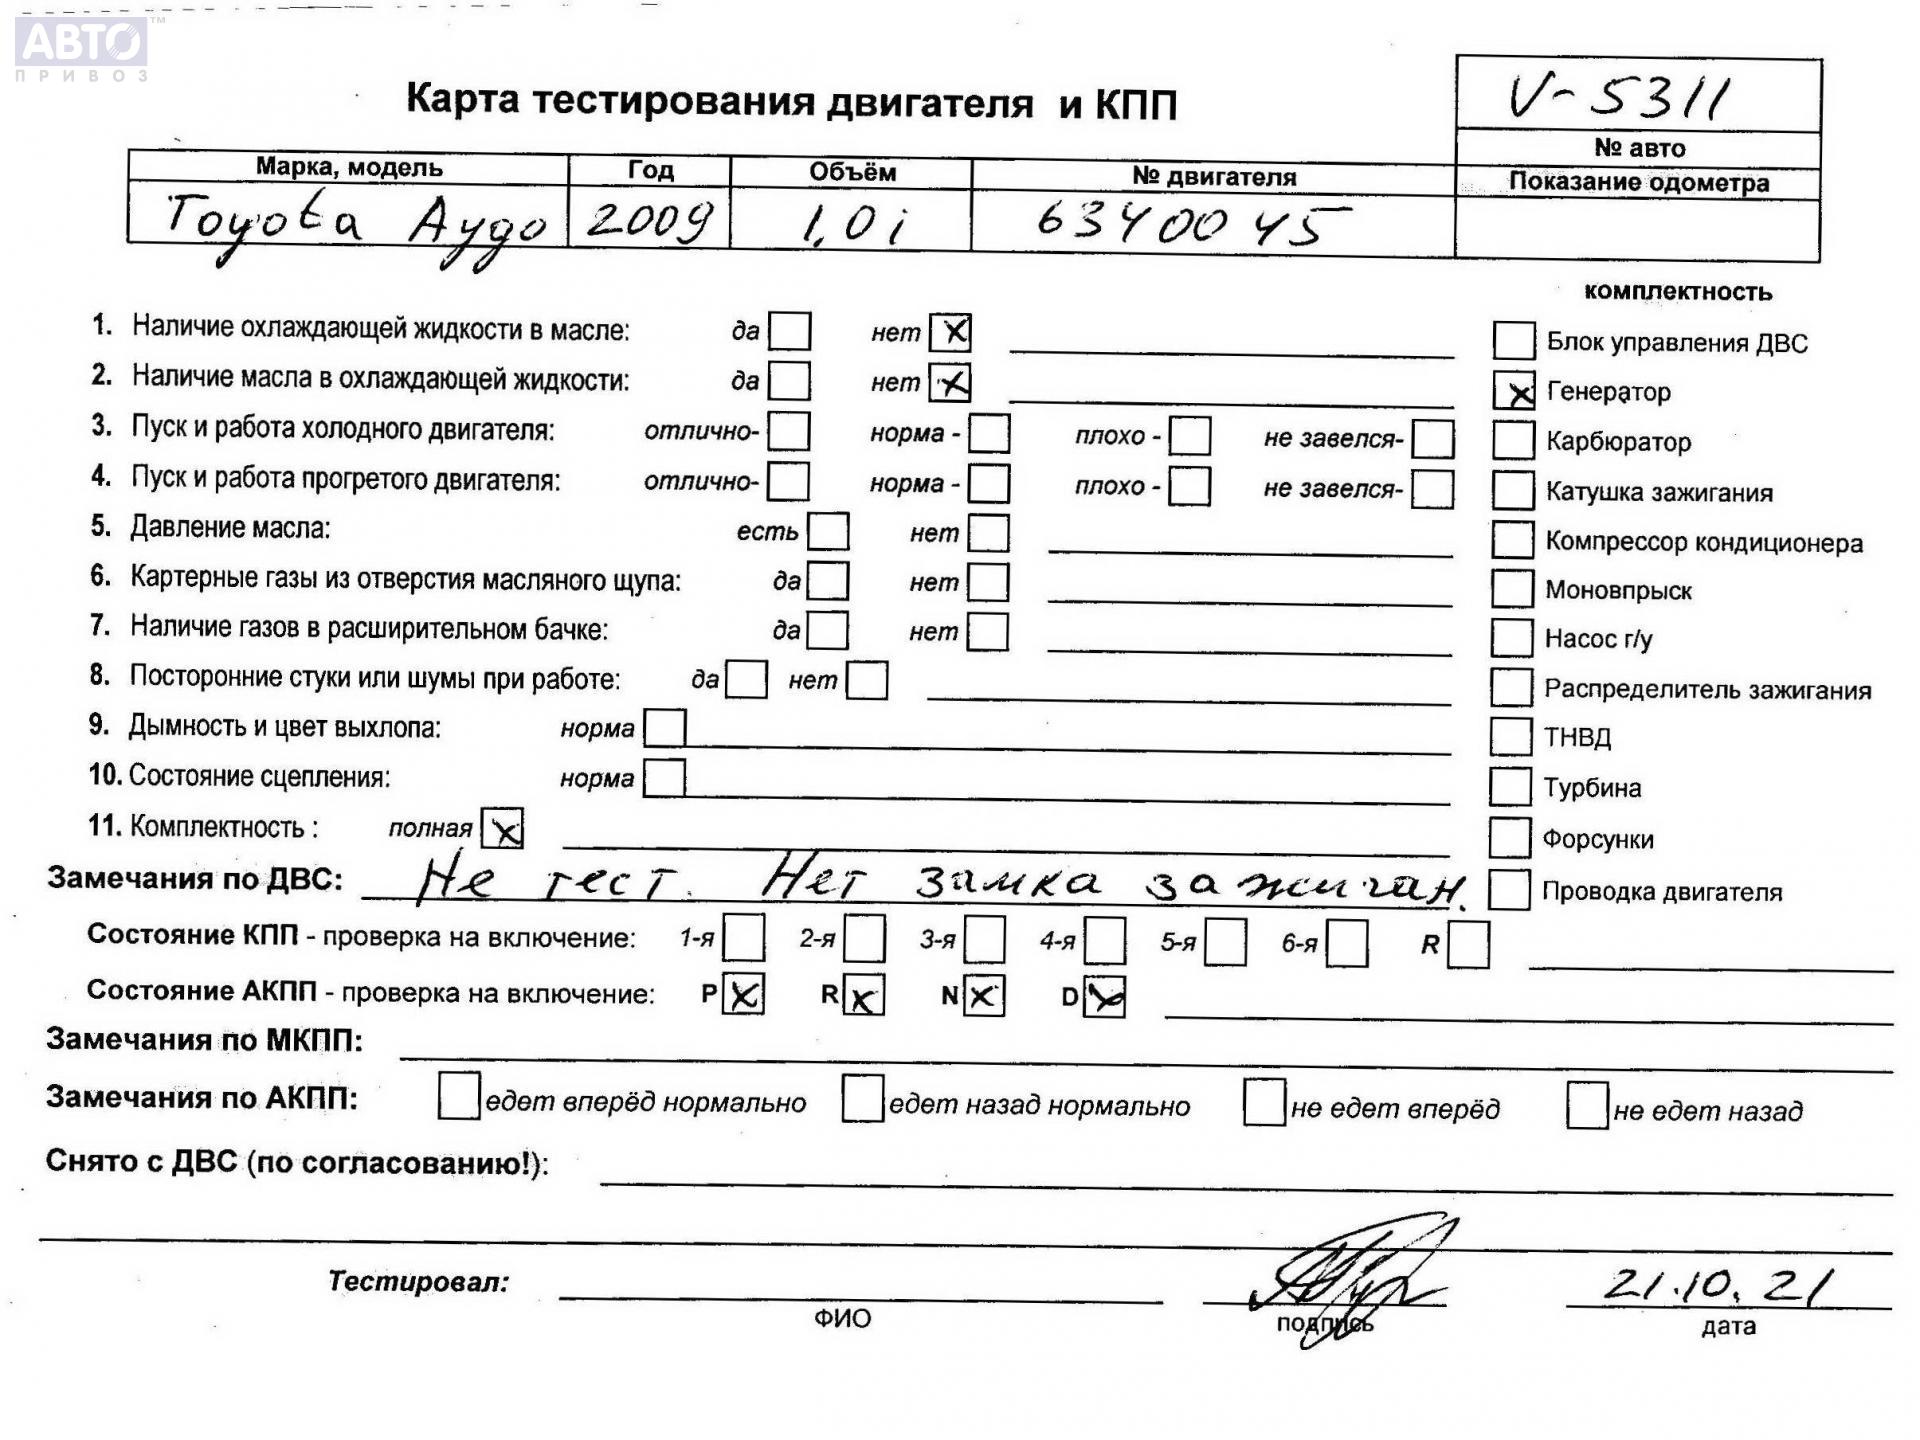 АВТО™
ПРИВОЗ
Карта тестирования двигателя и КПП
V-5311
№ авто
Марка, модель Год Объём № двигателя Показание одометра
Toyota Aygo 2009 1,0i 6340045
комплектность
1. Наличие охлаждающей жидкости в масле: да нет x
Блок управления ДВС
2. Наличие масла в охлаждающей жидкости: да нет x
x Генератор
3. Пуск и работа холодного двигателя: отлично- норма - плохо - не завелся-
Карбюратор
4. Пуск и работа прогретого двигателя: отлично- норма - плохо - не завелся-
Катушка зажигания
5. Давление масла: есть нет
Компрессор кондиционера
6. Картерные газы из отверстия масляного щупа: да нет
Моновпрыск
7. Наличие газов в расширительном бачке: да нет
Насос г/у
8. Посторонние стуки или шумы при работе: да нет
Распределитель зажигания
9. Дымность и цвет выхлопа: норма
ТНВД
10. Состояние сцепления: норма
Турбина
11. Комплектность : полная x
Форсунки
Замечания по ДВС: Не тест. Нет замка зажиган.
Проводка двигателя
Состояние КПП - проверка на включение: 1-я 2-я 3-я 4-я 5-я 6-я R
Состояние АКПП - проверка на включение: P x R x N x D x
Замечания по МКПП:
Замечания по АКПП: едет вперёд нормально едет назад нормально не едет вперёд не едет назад
Снято с ДВС (по согласованию!):
Тестировал: 21.10.21
ФИО подпись дата